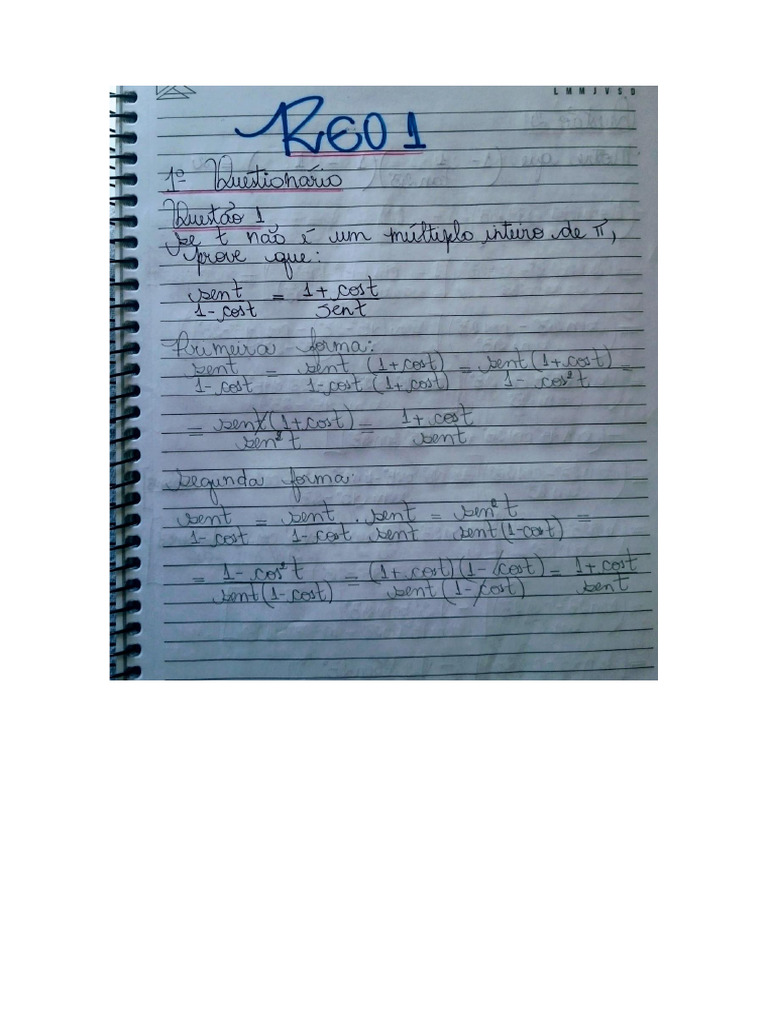 L M M J V S D
REO 1
1º Questionário
Questão 1
Se t não é um múltiplo inteiro de π,
prove que:
sent/1-cost = 1+cost/sent
Primeira forma:
sent/1-cost = sent (1+cost)/1-cost (1+cost) = sent(1+cost)/1-cos²t =
= sent(1+cost)/sen²t = 1+cost/sent
Segunda forma:
sent/1-cost = sent/1-cost . sent/sent = sen²t/sent(1-cost) =
= 1-cos²t/sent(1-cost) = (1+cost)(1-cost)/sent(1-cost) = 1+cost/sent